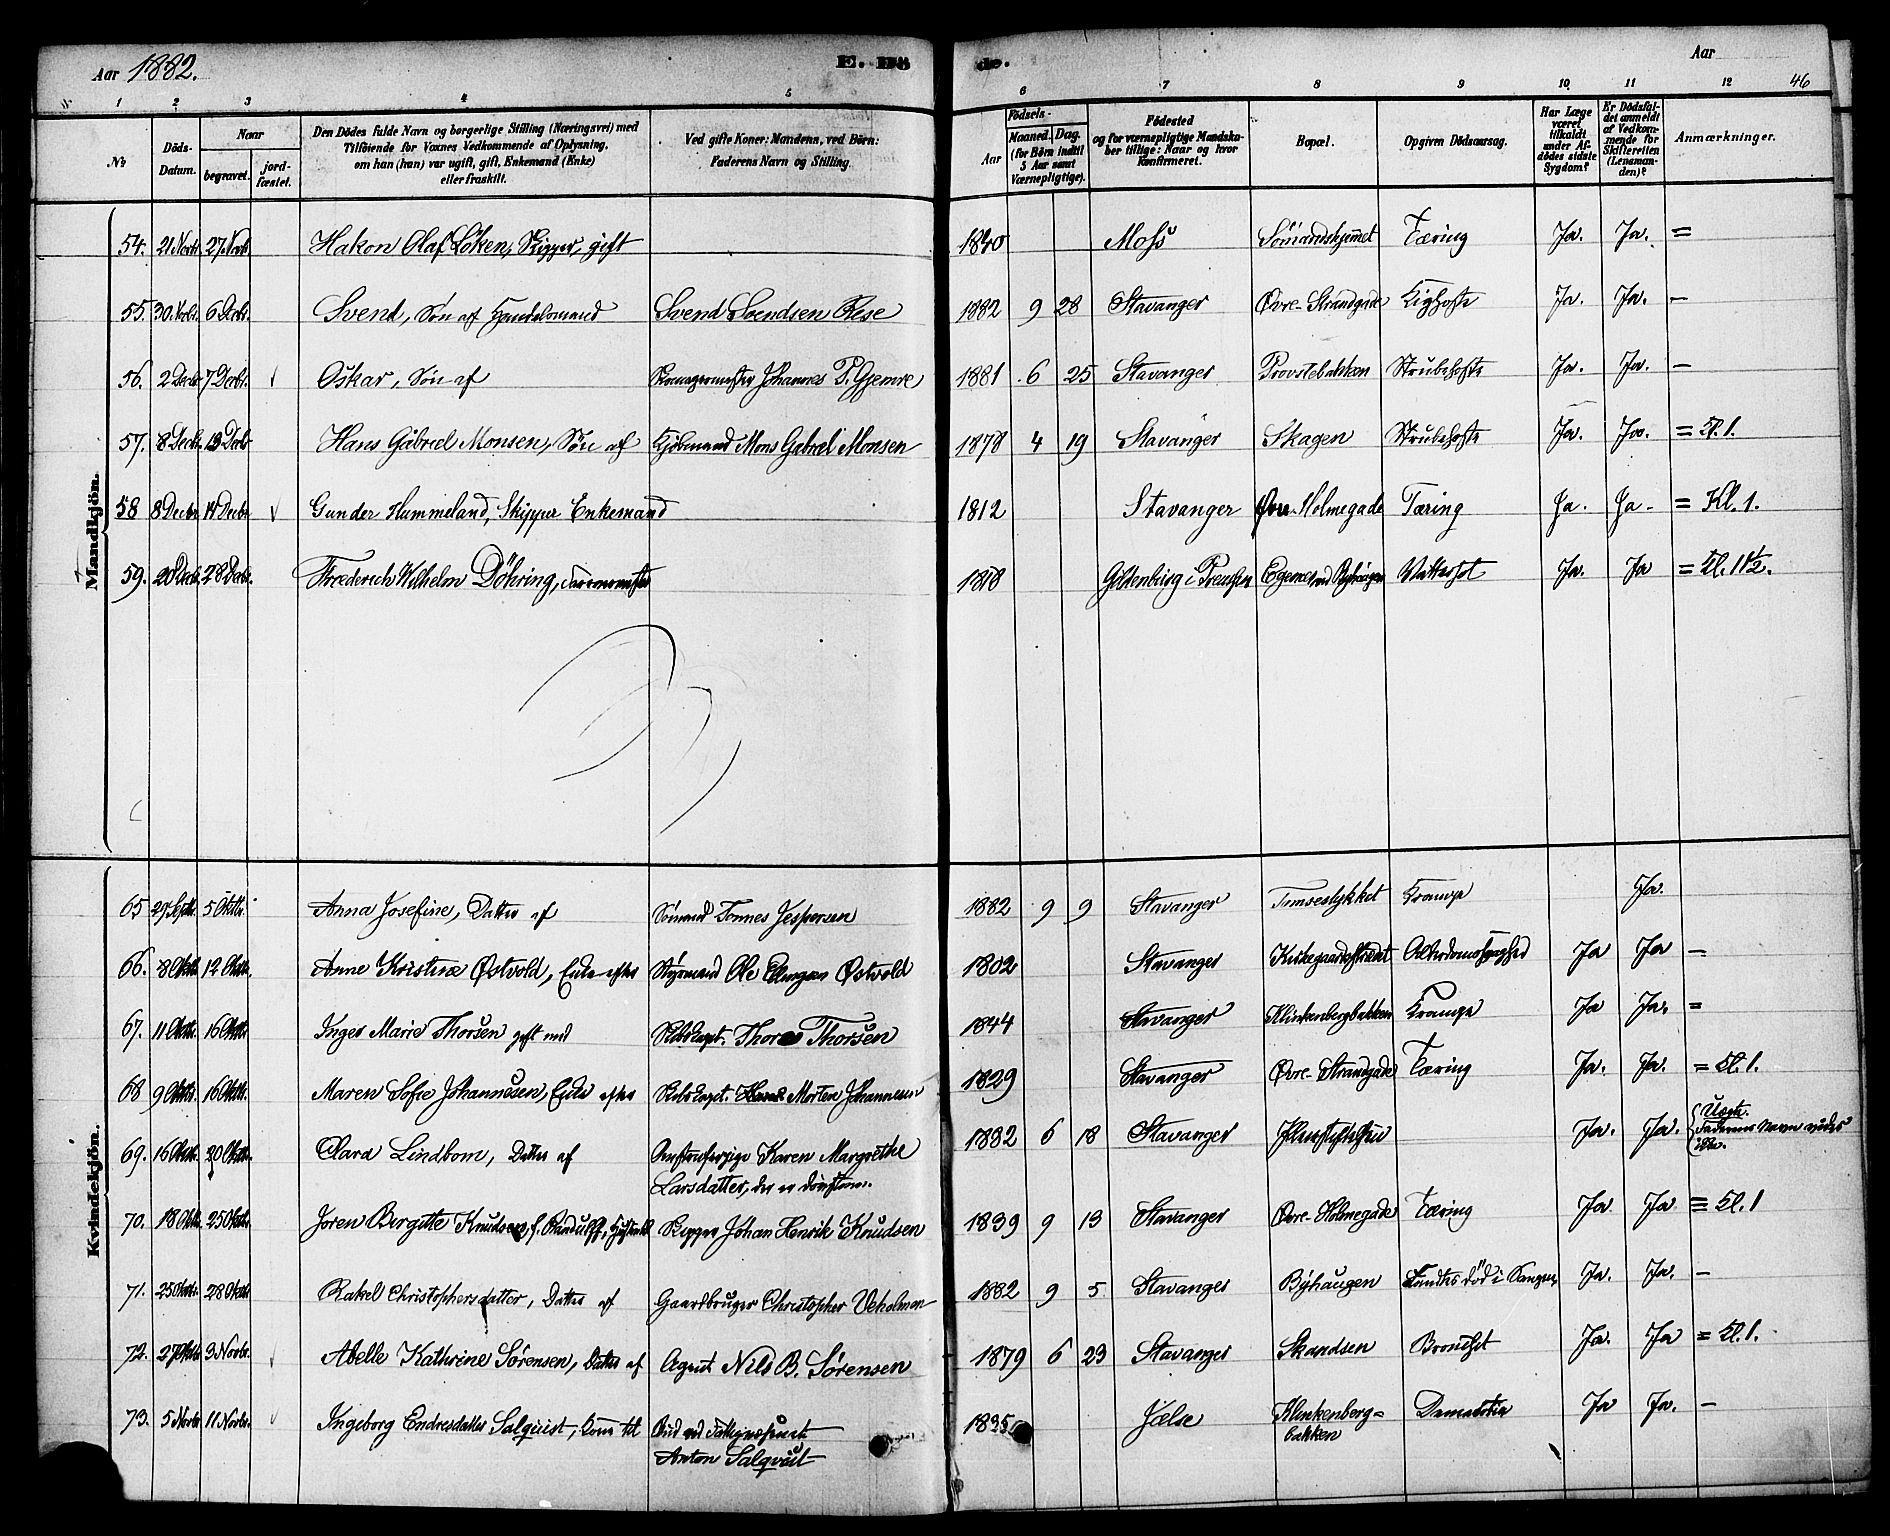 Aar 1882.
E. Dö
de.
Aar
46
1 2 3 4 5 6 7 8 9 10. 11 12
No
Döds-
Datum.
Naar
begravet.
jord-
fæstet.
Den Dödes fulde Navn og borgerlige Stilling (Næringsvei) med
Tilföiende for Voxnes Vedkommende af Oplysning,
om han (hun) var ugift, gift, Enkemand (Enke)
eller fraskilt.
Ved gifte Koner: Mandens, ved Börn:
Faderens Navn og Stilling.
Aar
Födsels-
Maaned. Dag.
(for Börn indtil
5 Aar samt
Værnepligtige).
Födested
og for værnepligtige Mandska-
ber tillige: Naar og hvor
konfirmeret.
Bopæl.
Opgiven Dödsaarsag.
Har Læge
været
tilkaldt
under Af-
dödes sidste
Sygdom?
Er Dödsfal-
det anmeldt
af Vedkom-
mende for
Skifteretten
(Lensman-
den)?
Anmærkninger.
Mandkjön.
54. 21 Novbr 27 Novbr Hakon Olaf Löken, Skipper, gift 1840 Moss Sömandshjemmet Tæring Ja. Ja. =
55. 30 Novbr. 6 Decbr. Svend, Sön af Handelsmand Svend Svendsen Rese 1882 9 28 Stavanger Övre Strandgade Kighoste Ja. Ja. -
56. 2 Decbr 7 Decbr. Oskar, Sön af Skomagermester Johannes P. Gjemre 1881 6 25 Stavanger Provstebakken Strubehoste Ja. Ja. -
57. 8 Decbr. 13 Decbr Hans Gabriel Monsen, Sön af Kjöbmand Mons Gabriel Monsen 1878 4 19 Stavanger Skagen Strubehoste Ja. Ja. = Kl. 1.
58 8 Decbr 14 Decbr Gunder Hummeland, Skipper Enkemand 1812 Stavanger Övre Holmegade Tæring Ja. Ja - = Kl. 1.
59. 20 Decbr. 28 Decbr. Fredrich Wilhelm Döhring, 1818 i Preussen Egenes ved Byhaugen Vattersot Ja. Ja = Kl. 1 1/2.
Kvindekjön.
65 29 Septbr. 5 Oktbr. Anna Josefine, Datter af Sömand Tönnes Jespersen 1882 9 9 Stavanger Krampe Ja.
66. 8 Oktbr. 12 Oktbr. Anne Kristine Östvold, Enke efter Styrmand Ole Östvold 1802 Stavanger Kirkegaardsstrædet Ja Ja -
67. 11 Oktbr. 16 Oktbr Inger Marie Thorsen gift med Skibskapt. Thorsen 1844 Stavanger Klinkenbergbakken Krampe Ja Ja. =
68 9 Oktbr. 16 Oktbr. Maren Sofie Johannesen, Enke efter Skibskapt. Morten Johannesen 1829 Stavanger Övre Strandgade Tæring Ja. Ja. = Kl. 1.
69. 16 Oktbr. 20 Oktbr. Clara Lindbom, Datter af Karen Margrethe
Larsdatter, 1882 6 18 Stavanger Ja. Ja. Uægte.
Faderens Navn
70. 18 Oktbr 25 Oktbr. Joren Birgitte Knudsen, f. Randulff, Skipper Johan Henrik Knudsen 1839 9 13 Stavanger Övre Holmegade Tæring Ja Ja = Kl. 1
71. 25 Oktbr. 28 Oktbr Rakel Christophersdatter, Datter af Gaardbruger Christopher Veholmen 1882 9 5 Stavanger Byhaugen Fandtes död i Sengen Ja. Ja. -
72. 27 Oktbr 3 Novbr. Abelle Kathrine Sörensen, Datter af Agent Nils B. Sörensen 1879 6 23 Stavanger Skandsen Bronchit Ja. Ja = Kl. 1.
73. 5 Novbr 11 Novbr. Ingeborg Endresdatter Salquist, Kone til Bud ved
Anton Salqvist 1835 Jælse Klinkenberg-
bakken Ja Ja. -